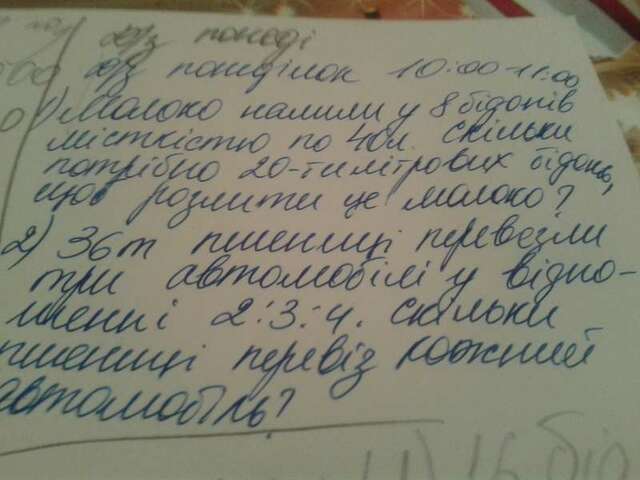 д/з понеді
д/з понеділок 10:00-11:00
1) Молоко налили у 8 бідонів
місткістю по 40л. Скільки
потрібно 20-тилітрових бідонів,
щоб розлити це молоко?
2) 36т пшениці перевезли
три автомобілі у відно-
шенні 2:3:4. Скільки
пшениці перевіз кожний
автомобіль?